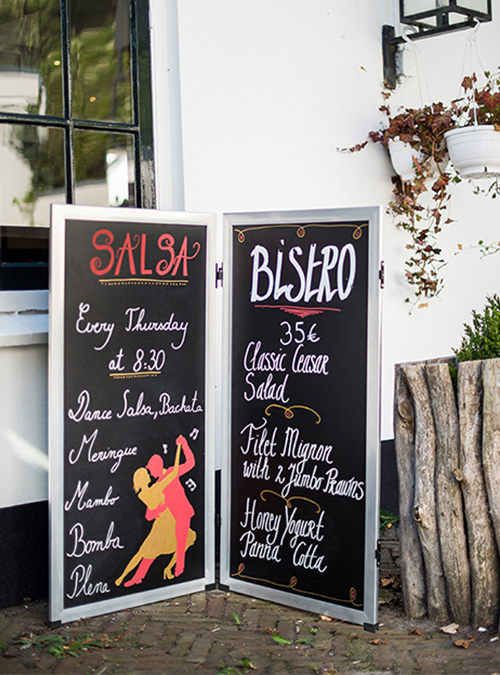 SALSA
Every Thursday
at 8:30
Dance Salsa, Bachata
Meringue
Mambo
Bomba
Plena
BIStRO
35€
Classic Ceasar
Salad
Filet Mignon
with 2 Jumbo Prawns
Honey Yogurt
Panna Cotta